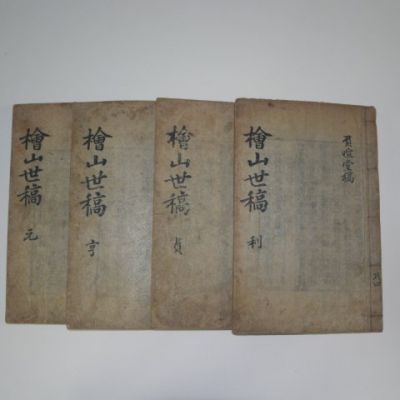 檜山世稿
元
檜山世稿
亨
檜山世稿
貞
檜山世稿
利